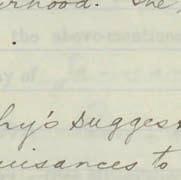 rhood. The
the above-mentione
ay of
hy's sugges
uisances to